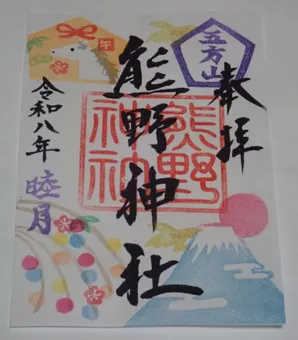 奉拝
五方山
熊野神社
熊野
神社
令和八年
睦月